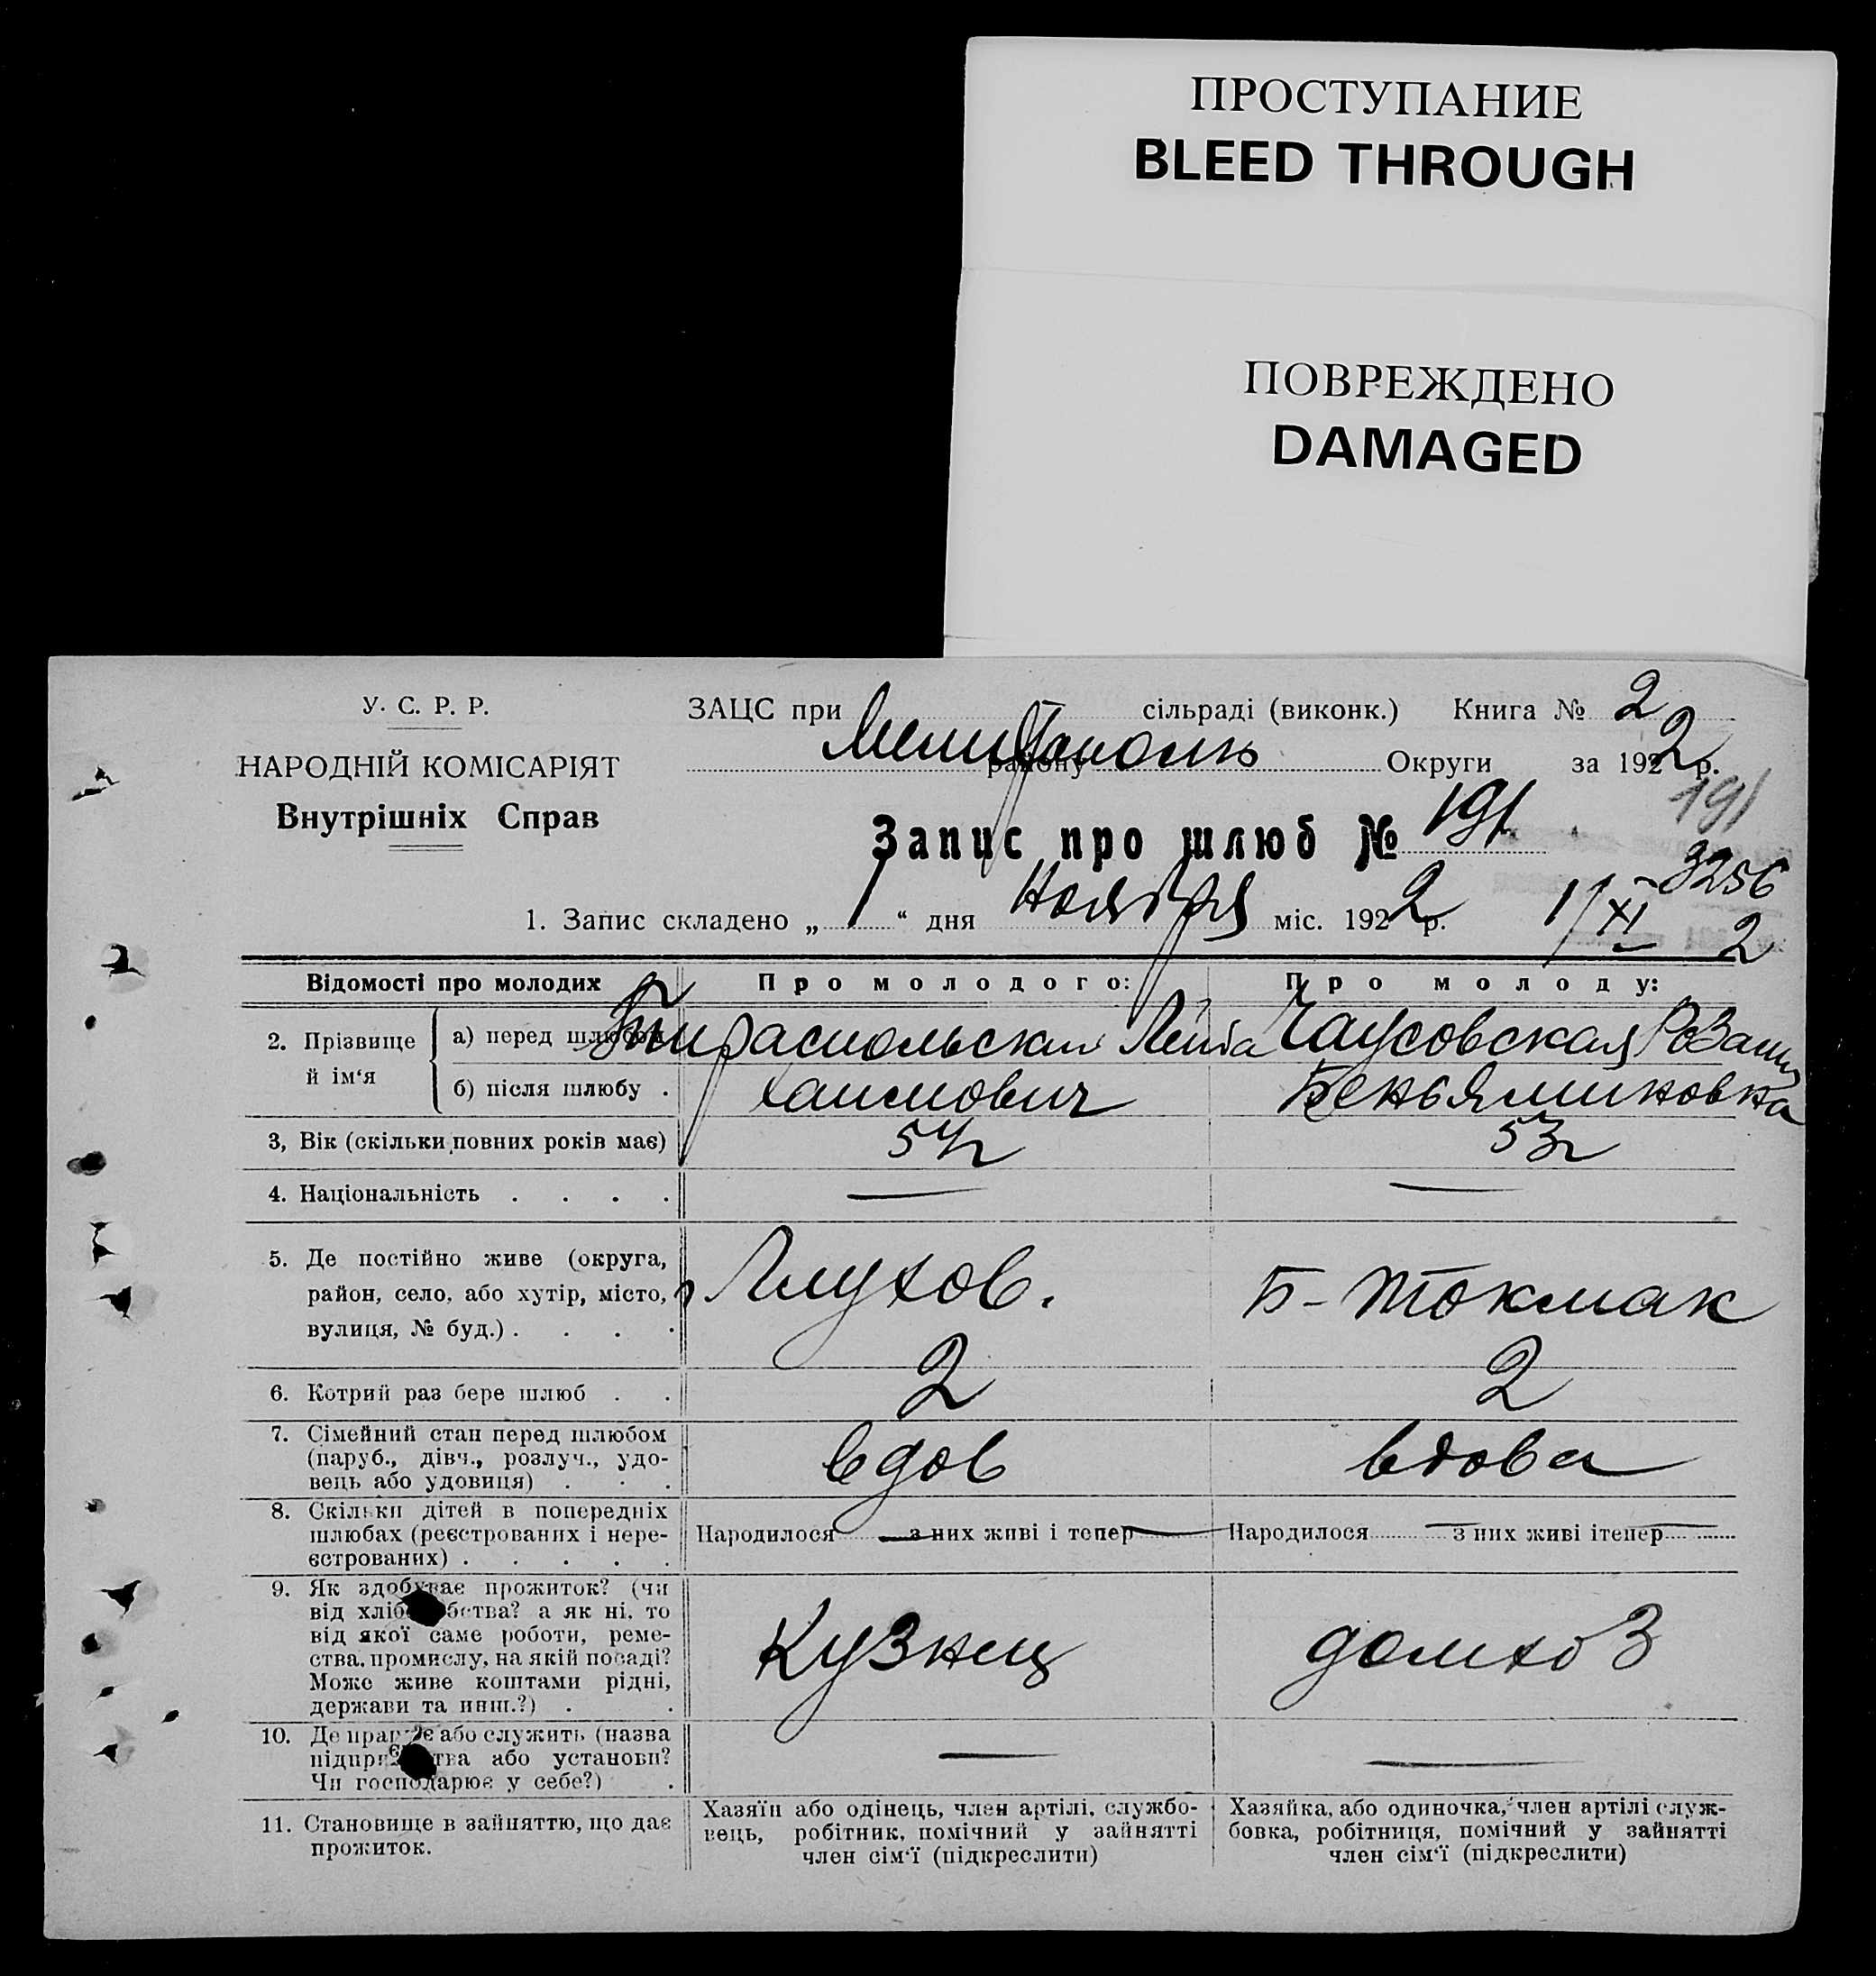 ПРОСТУПАНИЕ
BLEED THROUGH
ПОВРЕЖДЕНО
DAMAGED
У. С. Р. Р.
НАРОДНІЙ КОМІСАРІЯТ
Внутрішніх Справ
ЗАЦС при сільраді (виконк.) Книга № 2
Мелитополь району Округи за 1922 р.
191
Запис про шлюб № 191
3256
1. Запис складено „ 1 “ дня Ноября міс. 1922 р. 1/XI 2
Відомості про молодих Про молодого: Про молоду:
2. Прізвище й ім‘я
а) перед шлюбом Тираспольский Лейба Чаусовская
б) після шлюбу . Хаимович Беньяминовна
3, Вік (скільки повних років має) 57 л 53 л
4. Національність . . . . — —
5. Де постійно живе (округа,
район, село, або хутір, місто,
вулиця, № буд.) . . . .
Глухов. Б-Токмак
6. Котрий раз бере шлюб . . 2 2
7. Сімейний стан перед шлюбом
(паруб., дівч., розлуч., удо-
вець або удовиця) . . .
вдов вдова
8. Скільки дітей в попередніх
шлюбах (реєстрованих і нере-
єстрованих) . . . . .
Народилося — з них живі і тепер — Народилося — з них живі ітепер —
9. Як здобуває прожиток? (чи
від хліб бства? а як ні, то
від якої саме роботи, реме-
ства, промислу, на якій посаді?
Може живе коштами рідні,
держави та инш.?) . .
Кузнец домхоз
10. Де працює або служить (назва
підпри тва або установи?
Чи господарює у себе?) .
— —
11. Становище в зайняттю, що дає
прожиток.
Хазяїн або одінець, член артілі, службо-
вець, робітник, помічний у зайнятті
член сім‘ї (підкреслити)
Хазяйка, або одиночка, член артілі служ-
бовка, робітниця, помічний у зайнятті
член сім‘ї (підкреслити)